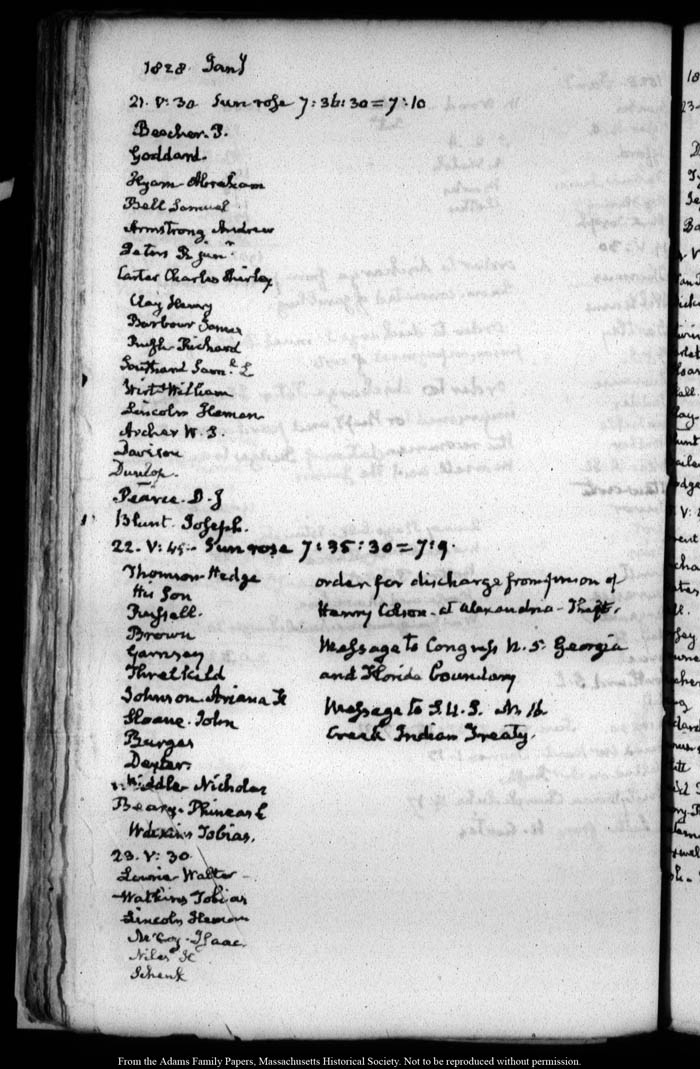 1828. Jany
21. V:30. Sun rose 7:36:30=7:10
Beecher. P.
Goddard.
Hyam Abraham
Bell Samuel
Armstrong Andrew
Peters R. junr
Carter Charles Shirley
Clay Henry
Barbour James
Rush Richard
Southard Saml. L
Wirt William
Lincoln Heman
Archer W. S.
Davison
Dunlop.
Pearce. D. J
Blunt Joseph.
22. V:45. Sun rose 7:35:30=7:9.
Thomson Hedge
His Son
Russell.
Brown
Garnsey
Threlkild
Johnson Ariana
Sloane. John
Burges
Dexter.
Biddle Nicholas
Beary. Phineas
Watkins Tobias.
order for discharge from prison of
Henry Colson. at Alexandria. Theft.
Message to Congress N. 5. Georgia
and Florida boundary
Message to S.U.S. N. 16
Creek Indian Treaty.
23. V:30
Lowrie Walter
Watkins Tobias
Lincoln Heman
McCoy. Isaac
Niles H
Schenk
From the Adams Family Papers, Massachusetts Historical Society. Not to be reproduced without permission.